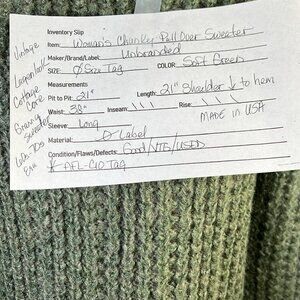 Inventory Slip
Item: Woman's Chunky Pull Over Sweater
Maker/Brand/Label: Unbranded
SIZE: Ø Size Tag COLOR: Soft Green
Measurements
Pit to Pit: 21" Length: 21" Shoulder ↓ to hem
Waist: 38" Inseam: \ \ \ Rise: \ \ \
Sleeve: Long MADE IN USA
Material: Ø Label
Condition/Flaws/Defects: Good/VTG/USED
* AFL-CIO Tag
Vintage
Cottage
Core
Granny
Sweater